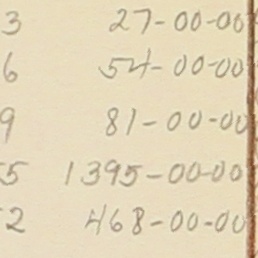 3 27-00-00
6 54-00-00
9 81-00-00
5 1395-00-00
2 468-00-00